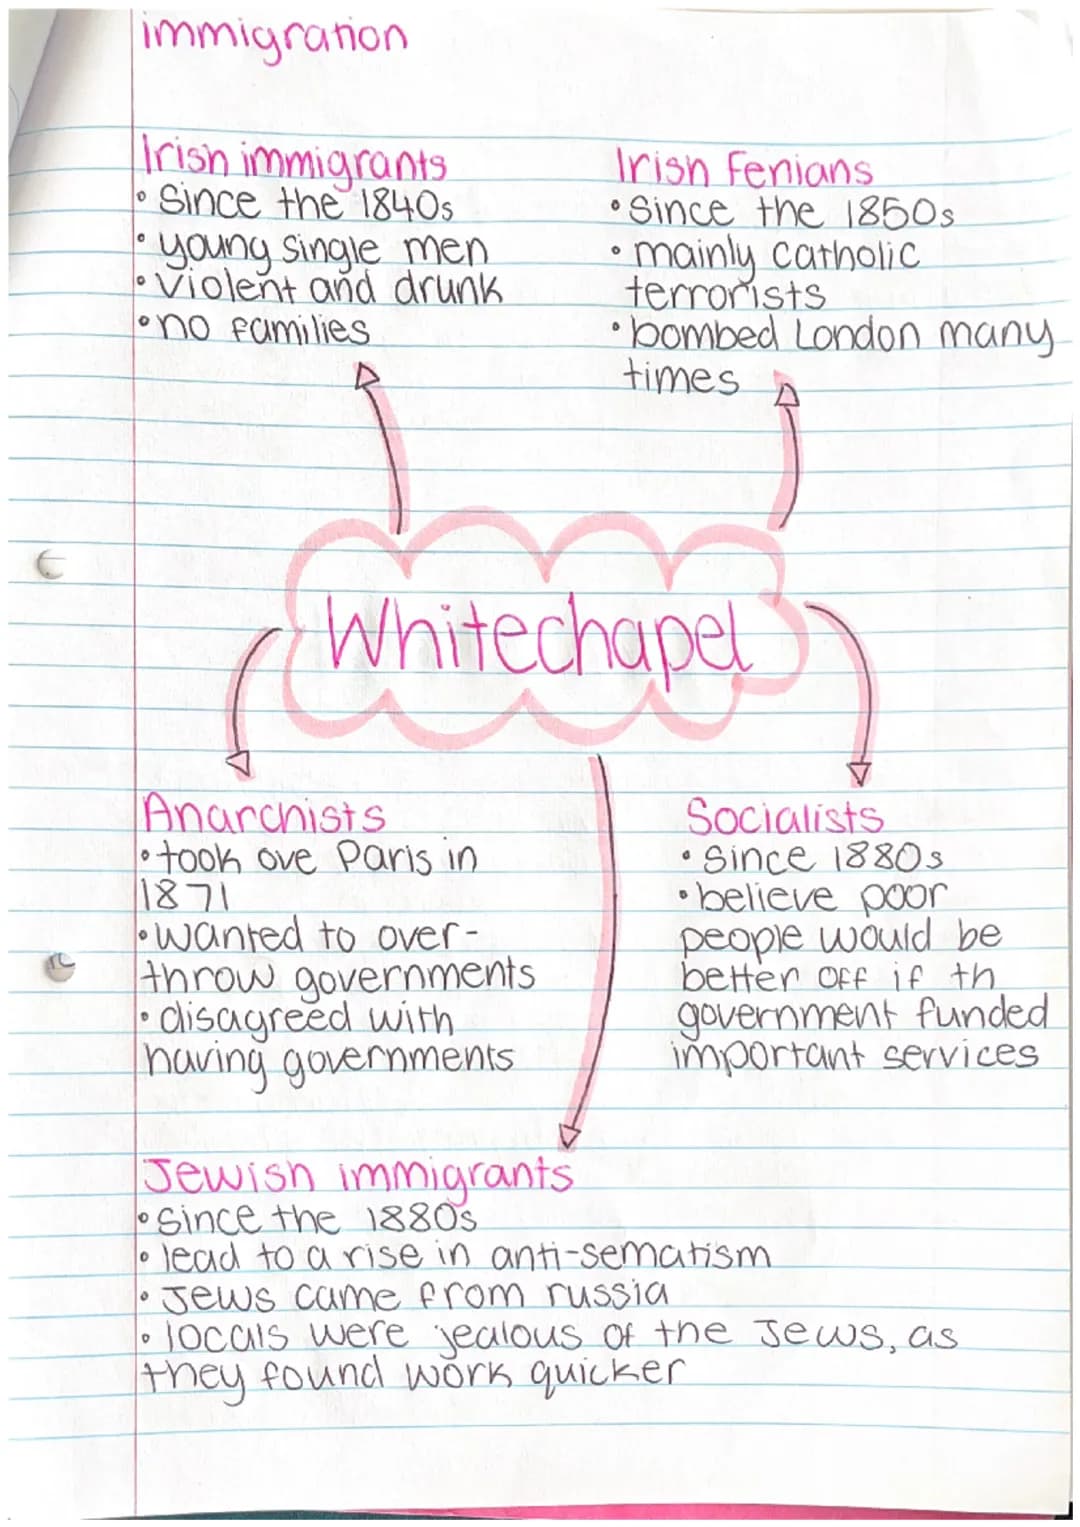 immigration
Irish immigrants
• Since the 1840s
• young single men
• violent and drunk
• no families
Irish Fenians
• Since the 1850s
• mainly catholic
terrorists
• bombed London many
times
Whitechapel
Anarchists
• took ove Paris in
1871
• wanted to over-
throw governments
• disagreed with
having governments
Socialists
• Since 1880s
• believe poor
people would be
better off if th
government funded
important services
Jewish immigrants
• since the 1880s
• lead to a rise in anti-sematism
• Jews came from russia
• locals were jealous of the Jews, as
they found work quicker